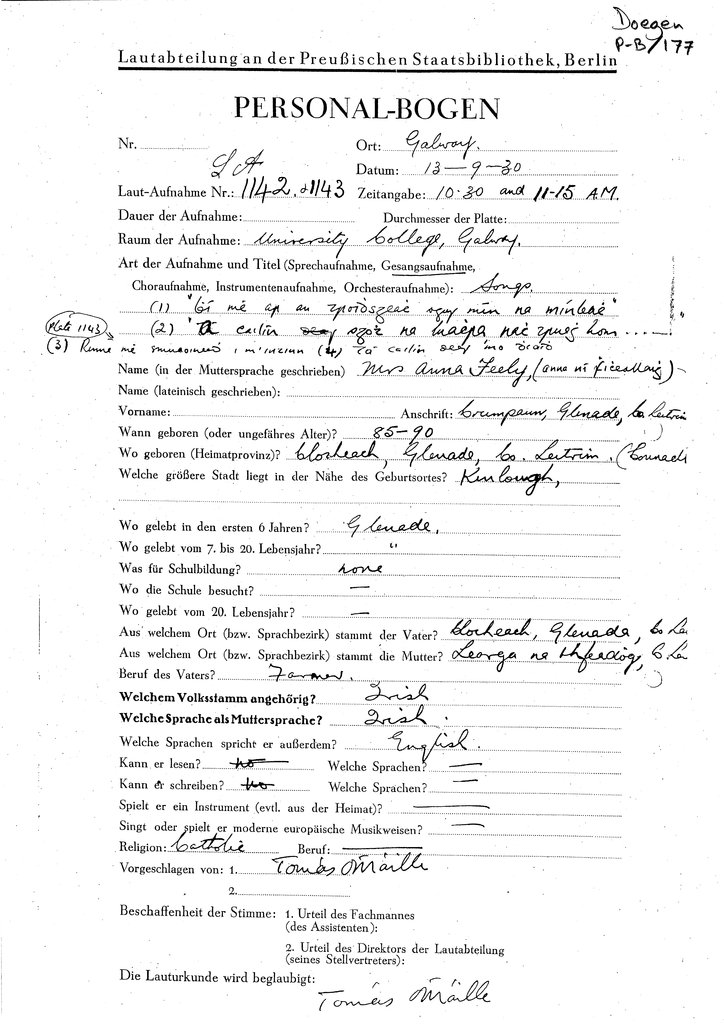 Doegen
P-B/177
Lautabteilung an der Preußischen Staatsbibliothek, Berlin
PERSONAL-BOGEN
Nr.
Ort: Galway.
LA
Datum: 13-9-30
Laut-Aufnahme Nr.: 1142 & 1143 Zeitangabe: 10·30 and 11-15 A.M.
Dauer der Aufnahme: Durchmesser der Platte:
Raum der Aufnahme: University College, Galway.
Art der Aufnahme und Titel (Sprechaufnahme, Gesangsaufnahme,
Choraufnahme, Instrumentenaufnahme, Orchesteraufnahme): Songs.
(1) mé na
Plate 1143
(2) cailín na
(3) mé (4) cailín
Name (in der Muttersprache geschrieben) Mrs Anna Feely,
Name (lateinisch geschrieben):
Vorname: Anschrift: Crumpaun, Glenade, Co Leitrim
Wann geboren (oder ungefähres Alter)? 85-90
Wo geboren (Heimatprovinz)? Clocheach, Glenade, Co. Leitrim.
Welche größere Stadt liegt in der Nähe des Geburtsortes? Kinlough,
Wo gelebt in den ersten 6 Jahren? Glenade.
Wo gelebt vom 7. bis 20. Lebensjahr? "
Was für Schulbildung? none
Wo die Schule besucht? —
Wo gelebt vom 20. Lebensjahr? —
Aus welchem Ort (bzw. Sprachbezirk) stammt der Vater? Clocheach, Glenade, Co Le
Aus welchem Ort (bzw. Sprachbezirk) stammt die Mutter? Learga na
Beruf des Vaters? Farmer.
Welchem Volksstamm angehörig? Irish
Welche Sprache als Muttersprache? Irish.
Welche Sprachen spricht er außerdem? English.
Kann er lesen? no Welche Sprachen? —
Kann er schreiben? no Welche Sprachen? —
Spielt er ein Instrument (evtl. aus der Heimat)? —
Singt oder spielt er moderne europäische Musikweisen? —
Religion: Catholic Beruf: —
Vorgeschlagen von: 1. Tomás Ó Máille
2.
Beschaffenheit der Stimme: 1. Urteil des Fachmannes
(des Assistenten):
2. Urteil des Direktors der Lautabteilung
(seines Stellvertreters):
Die Lauturkunde wird beglaubigt:
Tomás Ó Máille